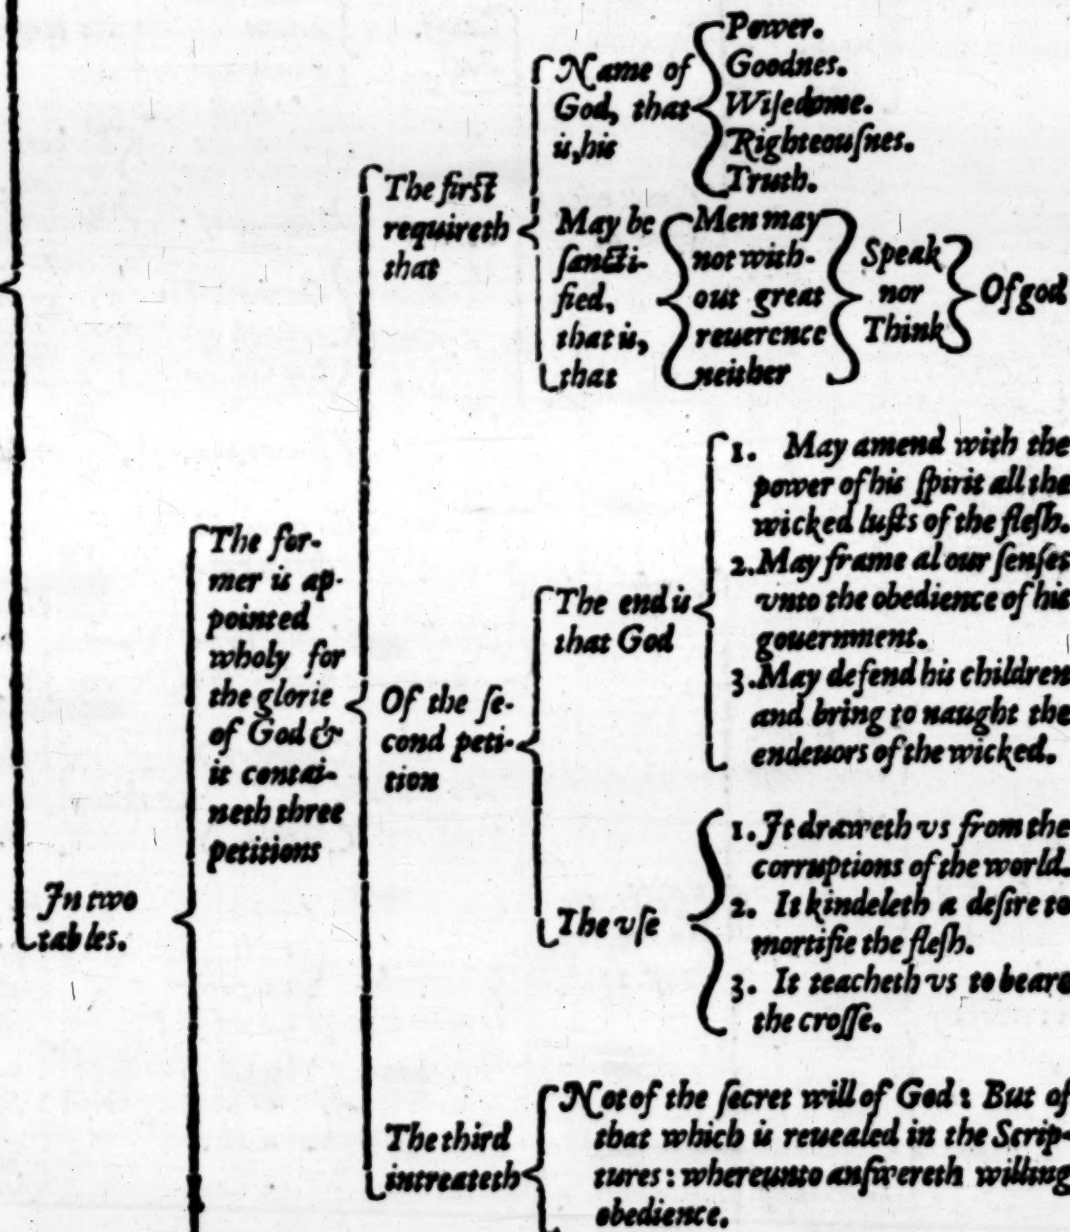 In two
tables.
The for-
mer is ap-
pointed
wholy for
the glorie
of God &
it contai-
neth three
petitions
The first
requireth
that
Name of
God, that
is, his
Power.
Goodnes.
Wiſedome.
Righteouſnes.
Truth.
May be
ſancti-
fied,
that is,
that
Men may
not with-
out great
reuerence
neither
Speak
nor
Think
Of god,
Of the ſe-
cond peti-
tion
The end is
that God
1. May amend with the
power of his ſpirit all the
wicked luſts of the fleſh.
2. May frame al our ſenſes
vnto the obedience of his
gouernment.
3. May defend his children
and bring to naught the
endeuors of the wicked.
The vſe
1. It draweth vs from the
corruptions of the world.
2. It kindeleth a deſire to
mortifie the fleſh.
3. It teacheth vs to beare
the croſſe.
The third
intreateth
Not of the ſecret will of God: But of
that which is reuealed in the Scrip-
tures: whereunto anſwereth willing
obedience.